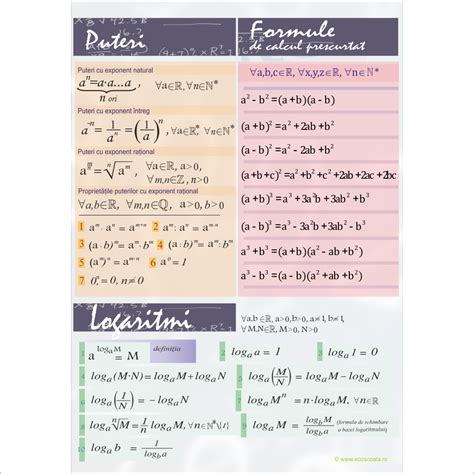 Puteri
Puteri cu exponent natural
aⁿ=a·a...a, ∀a∈ℝ, ∀n∈ℕ*
n ori
Puteri cu exponent întreg
a⁻ⁿ = 1/aⁿ = (1/a)ⁿ, ∀a∈ℝ* ∀n∈ℕ*
Puteri cu exponent rațional
a^(m/n) = ⁿ√aᵐ, ∀a∈ℝ, a>0,
∀m,n∈ℤ, n>0
Proprietățile puterilor cu exponent rațional
∀a,b∈ℝ, ∀m,n∈ℚ, a>0, b>0
1 aᵐ. aⁿ = aᵐ⁺ⁿ 2 aᵐ: aⁿ = aᵐ⁻ⁿ
3 (a·b)ᵐ = aᵐ·bᵐ 4 (a:b)ᵐ = aᵐ: bᵐ
5 (aᵐ)ⁿ = aᵐⁿ 6 a⁰ = 1
7 0ⁿ = 0, n≠0
Formule
de calcul prescurtat
∀a,b,c∈ℝ, ∀x,y,z∈ℝ, ∀n∈ℕ*
a² - b² =(a+b)(a - b)
(a+b)² =a² +2ab+b²
(a - b)² =a² - 2ab+b²
(a+b+c)² =a²+b²+c²+2ab+2ac+2bc
(a+b)³ =a³+3a²b+3ab²+b³
(a - b)³ =a³ - 3a²b+3ab² - b³
a³+b³ =(a+b)(a² - ab+b²)
a³ - b³ =(a - b)(a² +ab+b²)
Logaritmi
∀a,b∈ℝ, a>0,b>0, a≠1, b≠1,
∀M,N∈ℝ, M>0,N>0
1 a^(logₐM) = M definiția 2 logₐa = 1 3 logₐ1 = 0
4 logₐ(M·N)=logₐM+logₐN 5 logₐ(M/N)=logₐM-logₐN
6 logₐ(1/N) = -logₐN
8 logₐⁿ√M = 1/n logₐM, ∀n∈ℕ*\{1} 9 logₐM = log_bM/log_ba (formula de schimbare a bazei logaritmului)
10 logₐb = 1/log_ba
© www.edzscoala.ro